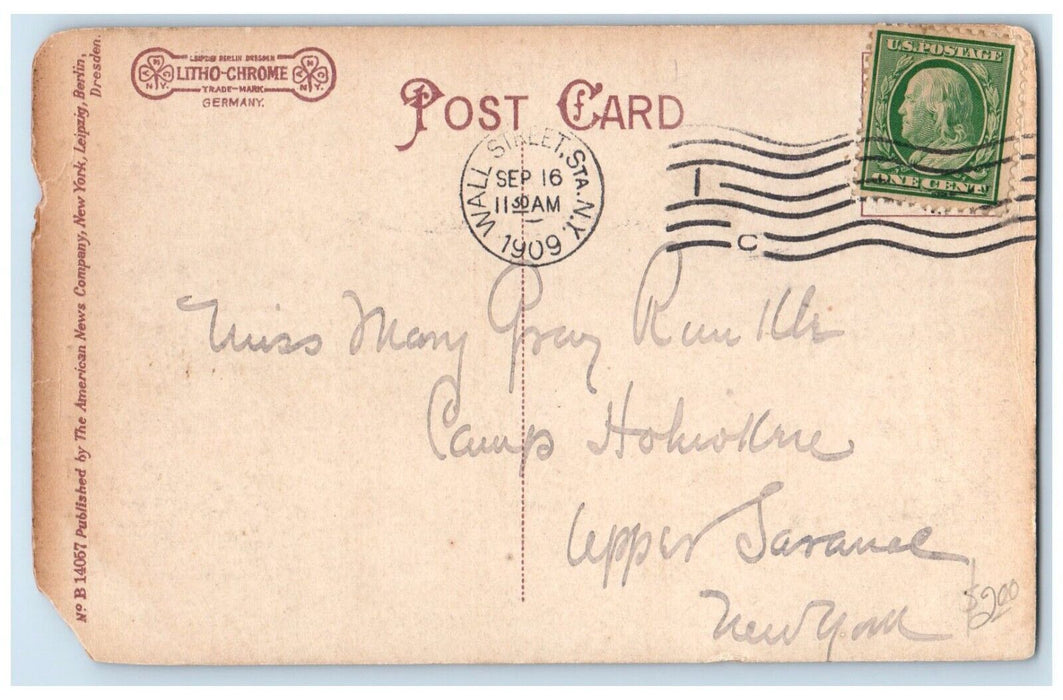 LEIPZIG BERLIN DRESDEN
LITHO-CHROME
TRADE-MARK
GERMANY.
POST CARD
U.S. POSTAGE
ONE CENT
WALL STREET, STA. N.Y.
SEP 16
11 30 AM
1909
1
C
Miss Mary Gray
Camp
Upper Saranac
New York
$2.00
No B 14057 Published by The American News Company, New York, Leipzig, Berlin,
Dresden.